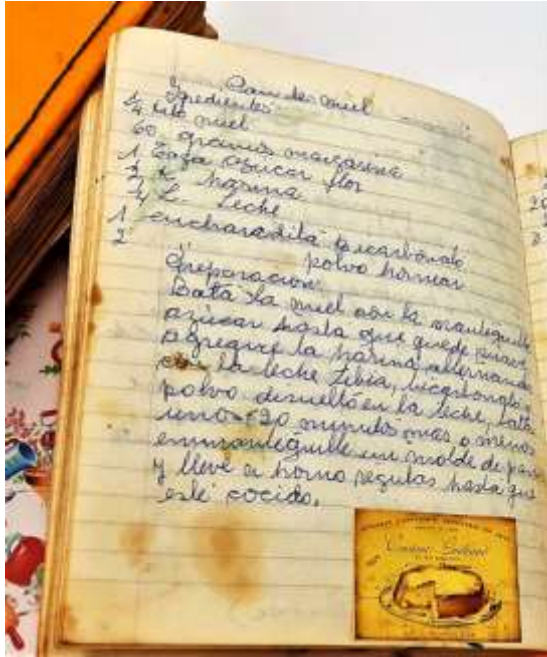 Pan de miel
Ingredientes:
1/4 Lito miel
60 gramos margarina
1 Taza azúcar flor
2 K harina
1/4 L. Leche
1 cucharadita bicarbonato
2 " polvo hornear
Preparación:
Bata la miel con la mantequilla
azúcar hasta que quede suave
agregue la harina alternando
con la leche tibia, bicarbonato,
polvo disuelto en la leche, bata
unos 20 minutos más o menos
enmantequille un molde de pan
y lleve a horno regular hasta que
esté cocido.
20